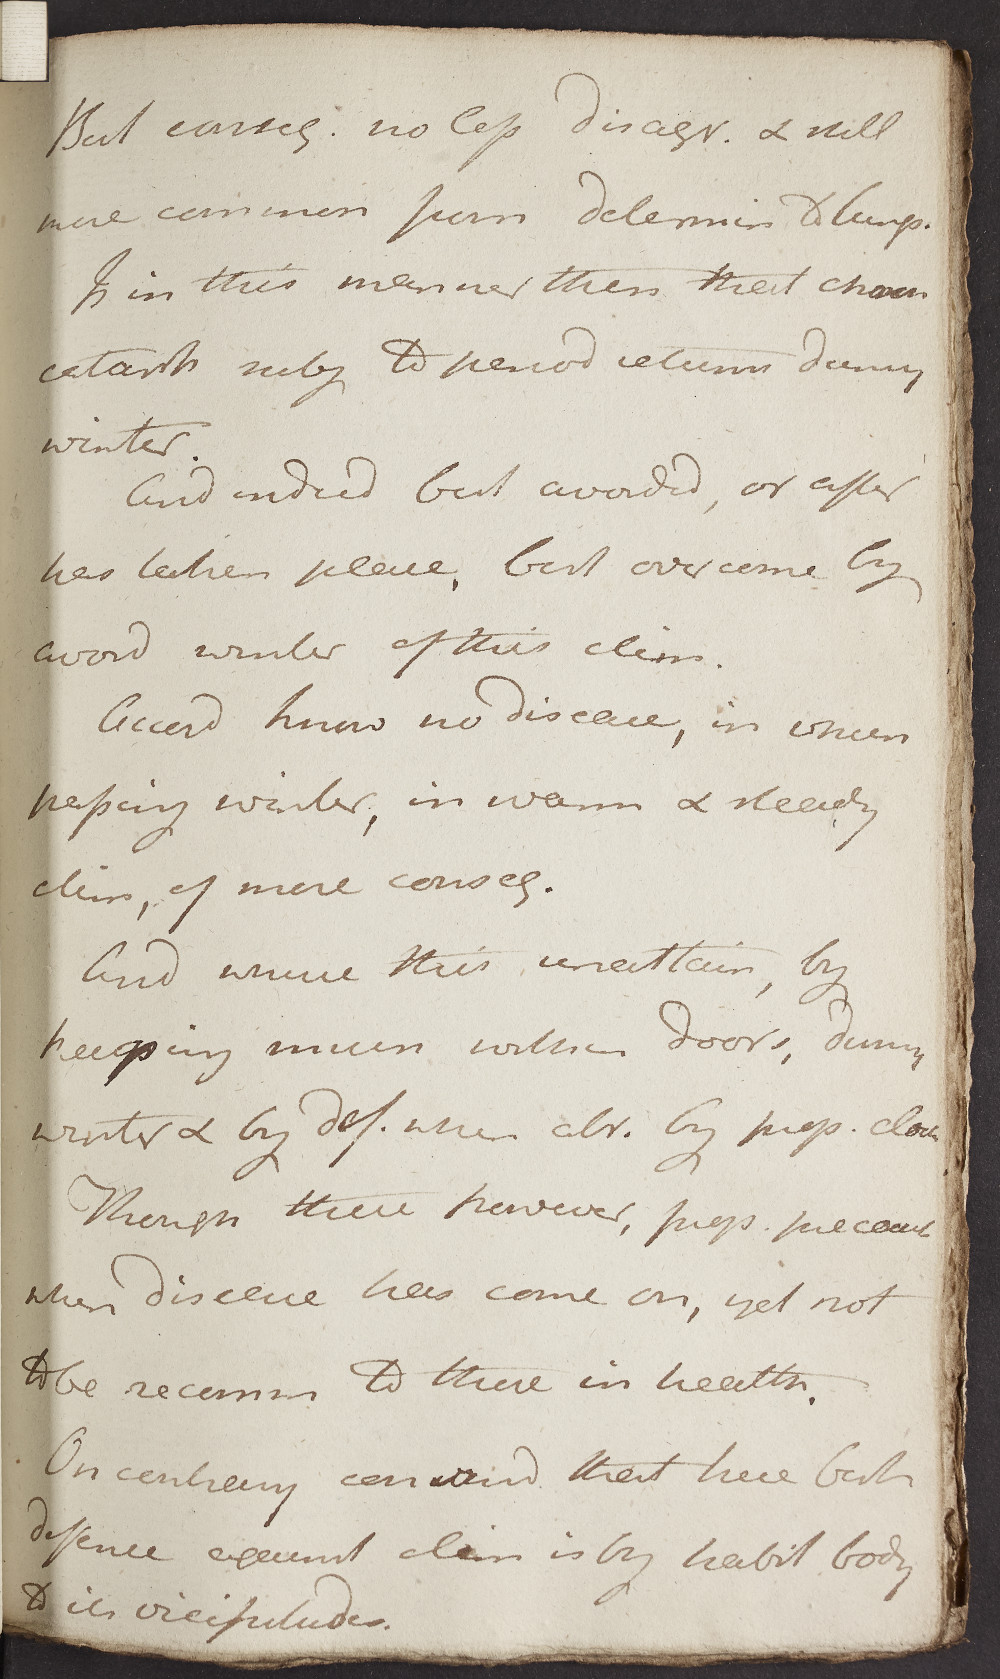 But conseq. no less disagr. & still
more common from determin to lungs.
Is in this manner then that chron
catarrh subj to period returns during
winter.
And indeed best avoided, or after
has taken place, best overcome by
avoid winter of this clim.
Accord know no disease, in which
passing winter, in warm & steady
clim, of more conseq.
And where this unattain, by
keeping much within doors, during
winter & by def. when abr. by prop. cloth
Though these however, prop. precaut
when disease has come on, yet not
to be recomm to those in health.
On contrary convinc that here best
defence against clim is by habit body
to its vicissitudes.